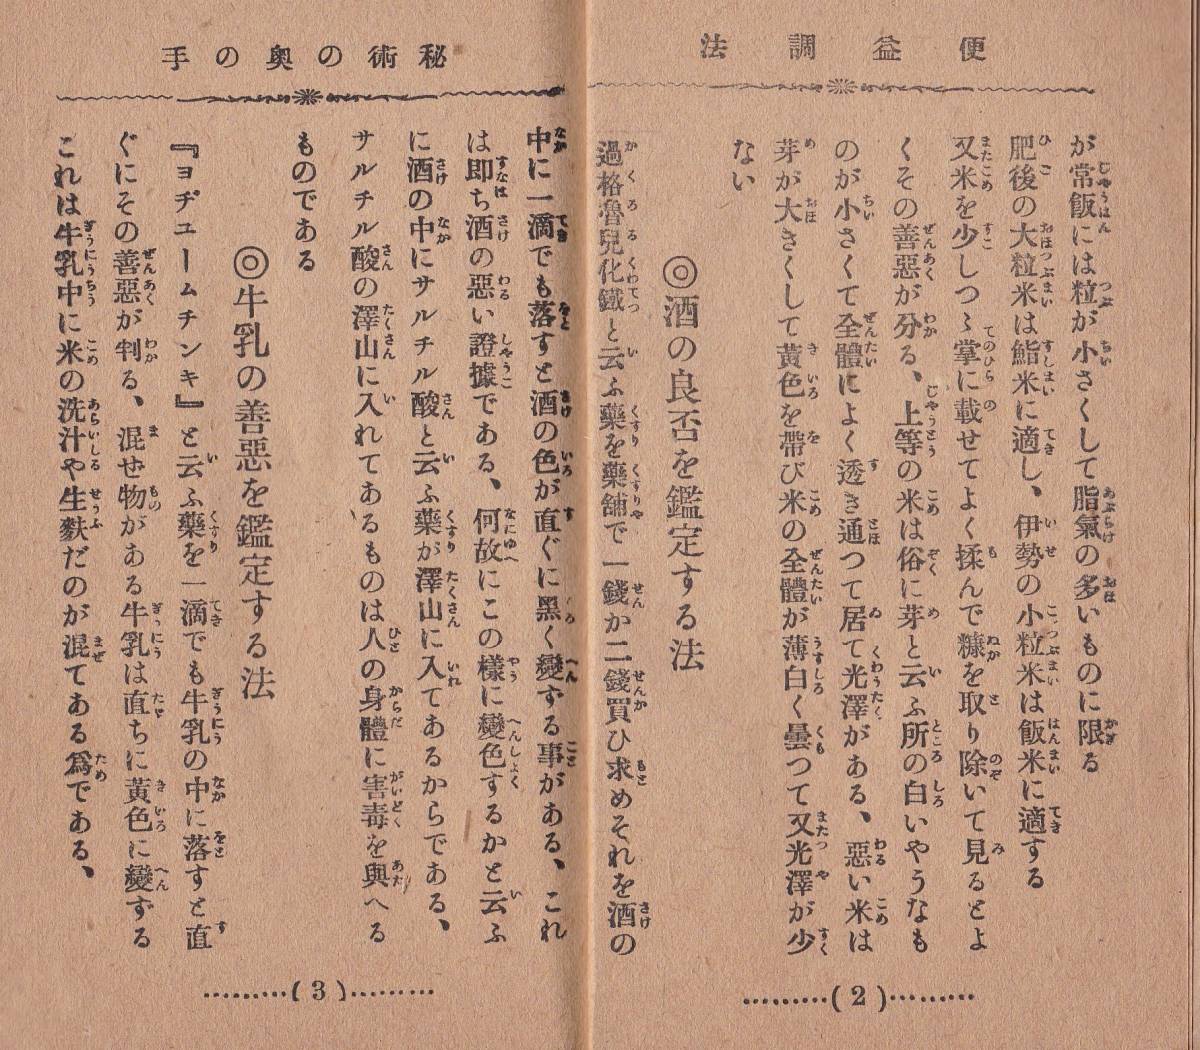 便益調法
が常飯には粒が小さくして脂氣の多いものに限る
肥後の大粒米は鮨米に適し、伊勢の小粒米は飯米に適する
又米を少しつゝ掌に載せてよく揉んで糠を取り除いて見るとよ
くその善惡が分る、上等の米は俗に芽と云ふ所の白いやうなも
のが小さくて全體によく透き通つて居て光澤がある、惡い米は
芽が大きくして黃色を帶び米の全體が薄白く曇つて又光澤が少
ない
◎酒の良否を鑑定する法
過格魯兒化鐵と云ふ藥を藥舖で一錢か二錢買ひ求めそれを酒の
(2)
秘術の奥の手
中に一滴でも落すと酒の色が直ぐに黑く變する事がある、これ
は即ち酒の惡い證據である、何故にこの樣に變色するかと云ふ
に酒の中にサルチル酸と云ふ藥が澤山に入てあるからである、
サルチル酸の澤山に入れてあるものは人の身體に害毒を與へる
ものである
◎牛乳の善惡を鑑定する法
『ヨヂユームチンキ』と云ふ藥を一滴でも牛乳の中に落すと直
ぐにその善惡が判る、混ぜ物がある牛乳は直ちに黃色に變する
これは牛乳中に米の洗汁や生麩だのが混てある爲である、
(3)